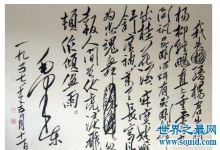 我失骄杨君失柳
杨柳轻飏直上重霄九
问讯吴刚何所有吴刚捧
出桂花酒寂寞嫦娥
舒广袖万里长空且
为忠魂舞忽
报人间曾伏虎泪飞
顿作倾盆雨
毛泽东
一九五七年五月十一日
世界之最网